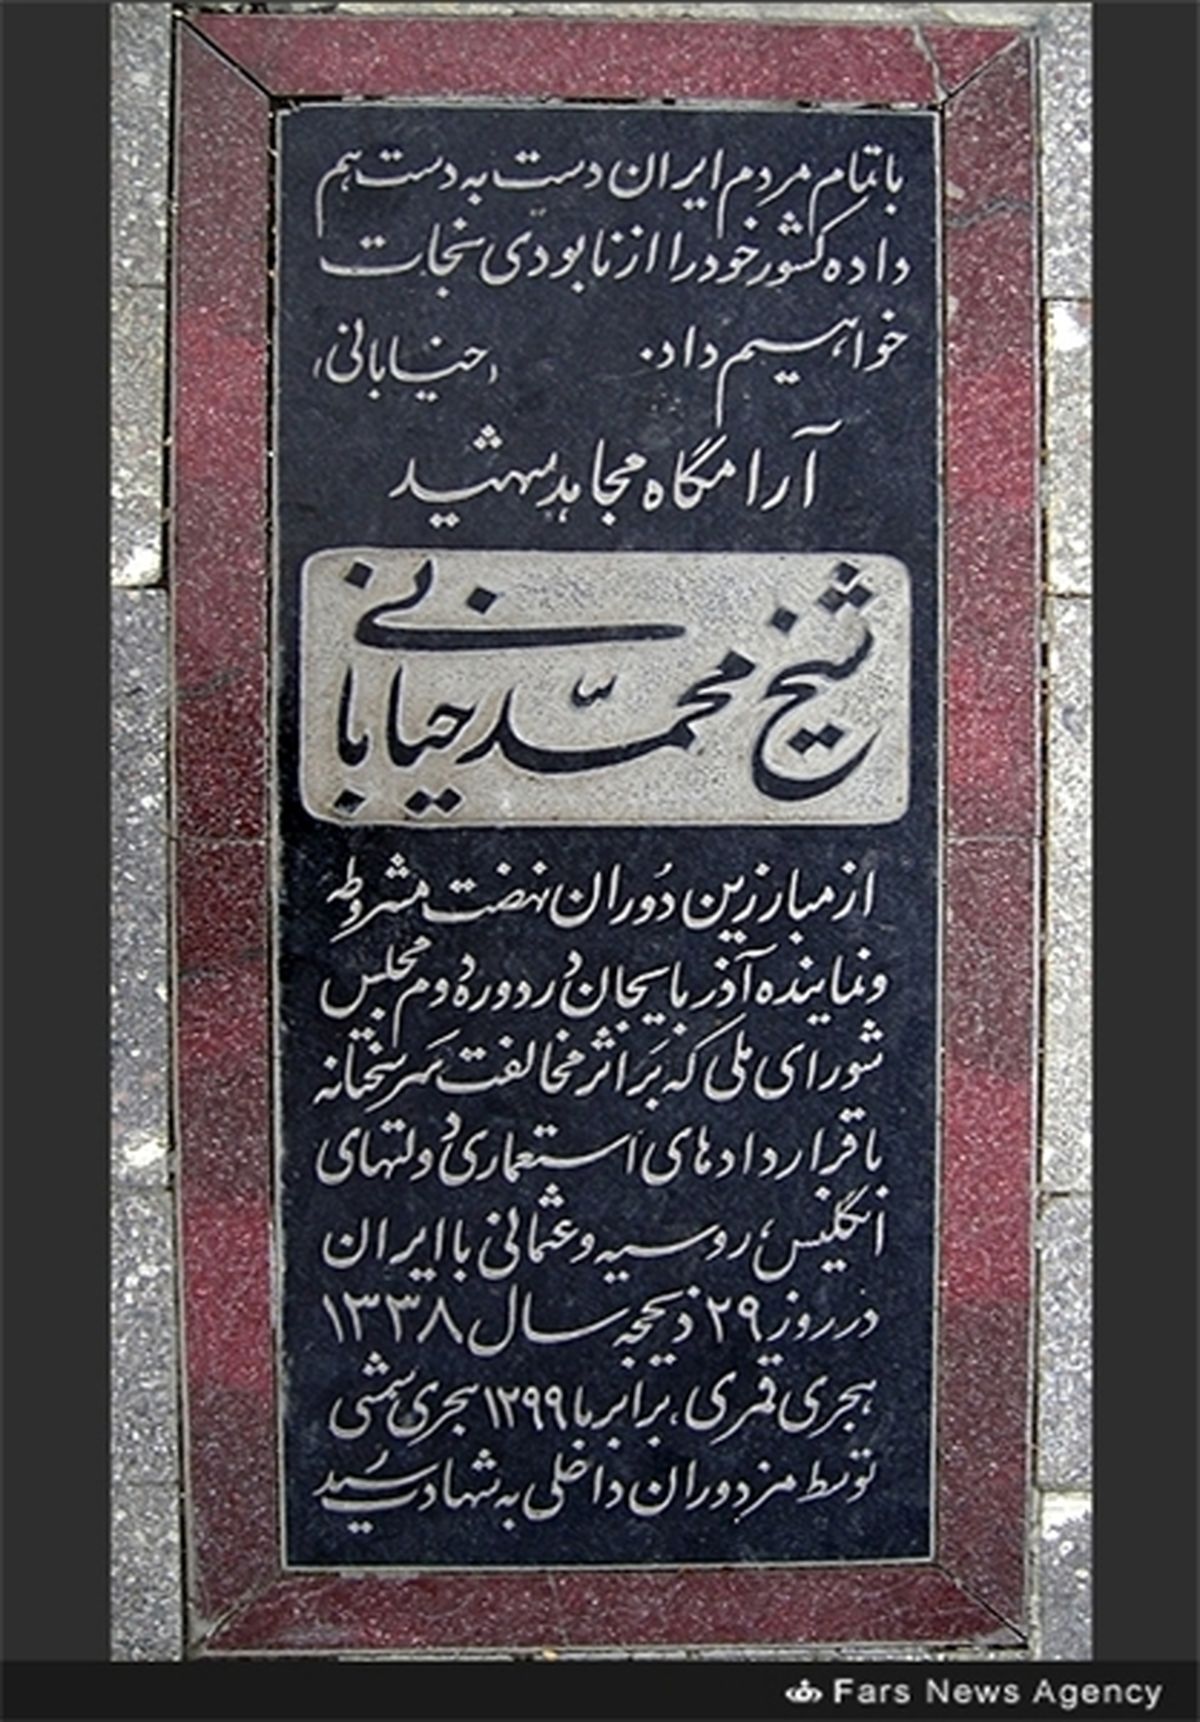 با تمام مردم ایران دست به دست هم
داده کشور خود را از نابودی نجات
خواهیم داد. (خیابانی)
آرامگاه مجاهد شهید
شیخ محمّد خیابانی
از مبارزین دُوران نهضت مشروطه
و نماینده آذربایجان در دورهٔ دوم مجلس
شورای ملی که بَر اثر مخالفت سَرسختانه
با قراردادهای استعماری دولتهای
انگلیس، روسیه و عثمانی با ایران
در روز ۲۹ ذیحجه سال ۱۳۳۸
هجری قمری، برابر با ۱۲۹۹ هجری شمسی
توسط مزدوران داخلی به شهادت رسید
Fars News Agency